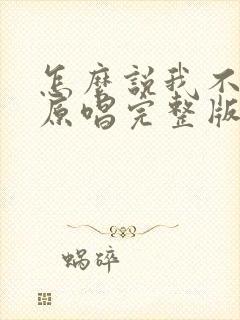 怎麼說我不
原唱完整版
蝸碎